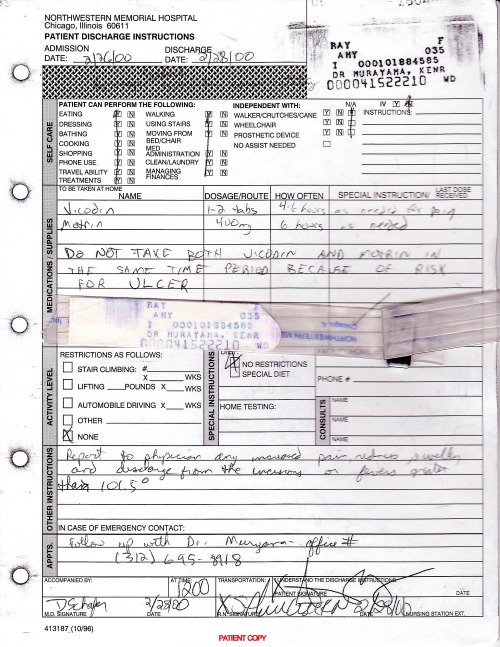 NORTHWESTERN MEMORIAL HOSPITAL
Chicago, Illinois 60611
PATIENT DISCHARGE INSTRUCTIONS
ADMISSION DATE: 2/26/00 DISCHARGE DATE: 2/28/00
RAY F
AMY 035
I 000101884585
DR MURAYAMA, KENR
000041522210 WD
SELF CARE
PATIENT CAN PERFORM THE FOLLOWING: INDEPENDENT WITH: N/A IV Y N
EATING Y N WALKING Y N WALKER/CRUTCHES/CANE Y N INSTRUCTIONS:
DRESSING Y N USING STAIRS Y N WHEELCHAIR Y N
BATHING Y N MOVING FROM BED/CHAIR Y N PROSTHETIC DEVICE Y N
COOKING Y N MED ADMINISTRATION Y N NO ASSIST NEEDED
SHOPPING Y N
PHONE USE Y N CLEAN/LAUNDRY Y N
TRAVEL ABILITY Y N MANAGING FINANCES Y N
TREATMENTS Y N
MEDICATIONS / SUPPLIES
TO BE TAKEN AT HOME
NAME DOSAGE/ROUTE HOW OFTEN SPECIAL INSTRUCTION/ LAST DOSE RECEIVED
Vicodin 1-2 tabs 4-6 hours as needed for pain
Motrin 400mg 6 hours as needed
DO NOT TAKE BOTH VICODIN AND MOTRIN IN
THE SAME TIME PERIOD BECAUSE OF RISK
FOR ULCER
RAY
AMY 035
I 000101884585
DR MURAYAMA, KENR
000041522210 WD
ACTIVITY LEVEL
RESTRICTIONS AS FOLLOWS:
STAIR CLIMBING: #
X WKS
LIFTING POUNDS X WKS
AUTOMOBILE DRIVING X WKS
OTHER
NONE
SPECIAL INSTRUCTIONS
NO RESTRICTIONS
SPECIAL DIET
HOME TESTING:
PHONE #
CONSULTS
NAME
NAME
NAME
OTHER INSTRUCTIONS
Report to physician any increased pain, redness, swelling
and discharge from the incisions or fevers greater
than 101.5°
APPTS.
IN CASE OF EMERGENCY CONTACT:
Follow up with Dr. Muryama - office #
(312) 695-8918
ACCOMPANIED BY: AT TIME: 1200 TRANSPORTATION: I UNDERSTAND THE DISCHARGE INSTRUCTIONS
PATIENT SIGNATURE DATE
2/28/00 2/28/00
M.D. SIGNATURE DATE R.N. SIGNATURE DATE NURSING STATION EXT.
413187 (10/96)
PATIENT COPY